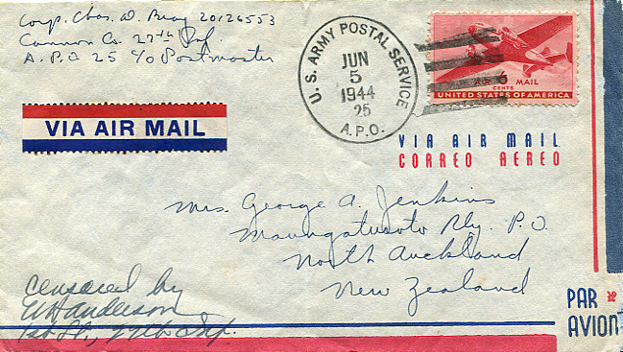 Corp. Chas. D. Bray 20126553
Cannon Co. 27th Inf.
A.P.O 25 c/o Postmaster
VIA AIR MAIL
U.S. ARMY POSTAL SERVICE
JUN
5
1944
25
A.P.O.
AIR 6 MAIL
CENTS
UNITED STATES OF AMERICA
VIA AIR MAIL
CORREO AEREO
Mrs. George A. Jenkins
Maungaturoto Rly. P.O.
North Auckland
New Zealand
Censored by
W H Anderson
1st Lt., 27th Inf.
PAR
AVION